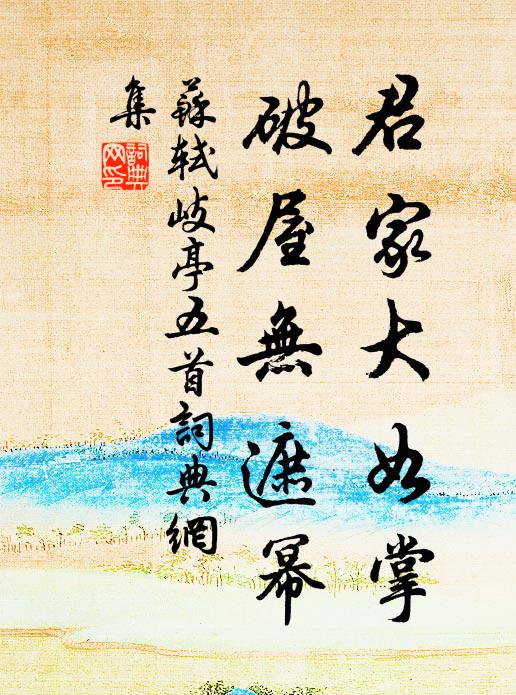 君家大如掌
破屋無遮幂
蘇軾岐亭五首詞典網
集
詞典网印